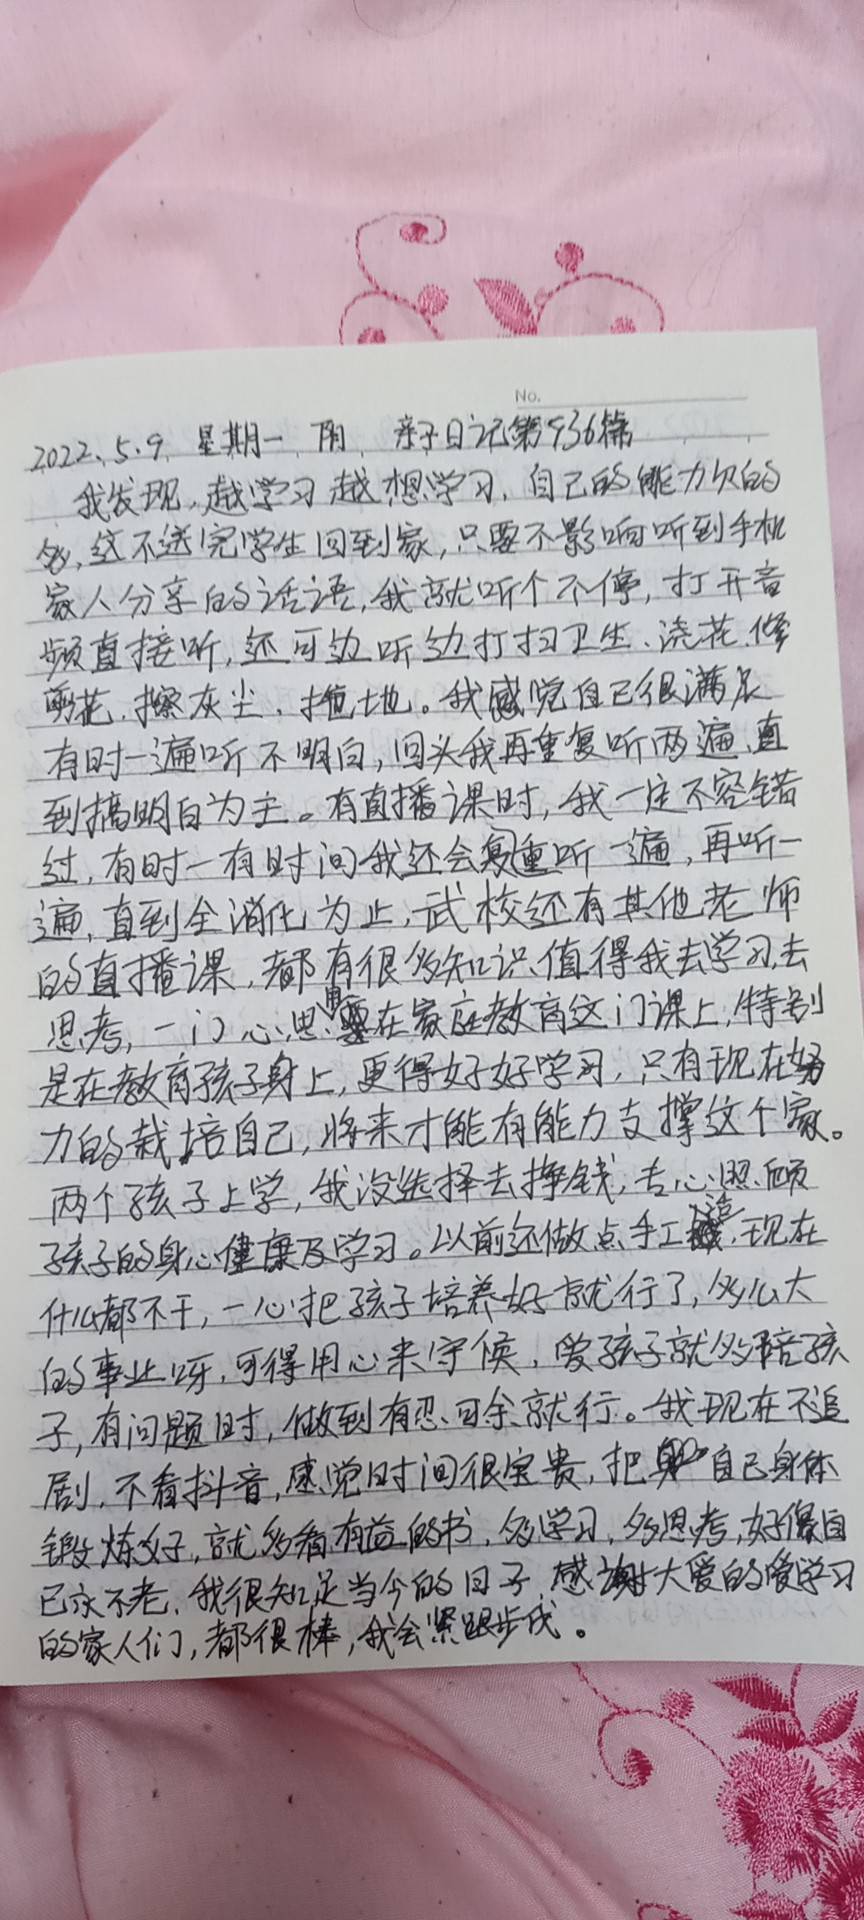 No.
2022.5.9 星期一 阴 亲子日记第936篇
我发现,越学习越想学习,自己的能力欠的
多,这不送完学生回到家,只要不影响听到手机
家人分享的话语,我就听个不停,打开音
频直接听,还可边听边打扫卫生、浇花、修
剪花、擦灰尘、拖地。我感觉自己很满足
有时一遍听不明白,回头我再重复听两遍,直
到搞明白为主。有直播课时,我一定不容错
过,有时一有时间我还会重听一遍,再听一
遍,直到全消化为止,武校还有其他老师
的直播课,都有很多知识,值得我去学习,去
思考,一门心思用在家庭教育这门课上,特别
是在教育孩子身上,更得好好学习,只有现在努
力的栽培自己,将来才能有能力支撑这个家。
两个孩子上学,我没选择去挣钱,专心照顾
孩子的身心健康及学习。以前还做点手工活,现在
什么都不干,一心把孩子培养好就行了,多么大
的事业呀,可得用心来守候,爱孩子就多陪孩
子,有问题时,做到有忍可余就行。我现在不追
剧,不看抖音,感觉时间很宝贵,把自己身体
锻炼好,就多看有益的书,多学习,多思考,好像自
己永不老,我很知足当今的日子,感谢大爱的爱学习
的家人们,都很棒,我会紧跟步伐。